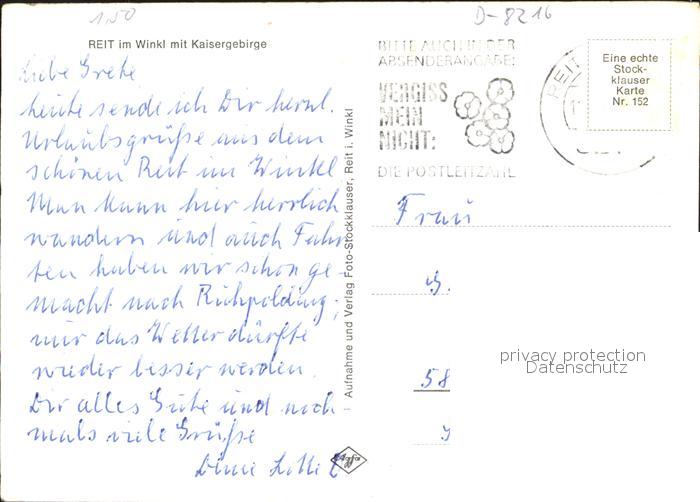 1,50
D-8216
REIT im Winkl mit Kaisergebirge
Liebe Grete
heute sende ich Dir herzl.
Urlaubsgrüße aus dem
schönen Reit im Winkel
Man kann hier herrlich
wandern und auch Fahr-
ten haben wir schon ge-
macht nach Ruhpolding;
nur das Wetter dürfte
wieder besser werden.
Dir alles Gute und noch-
mals viele Grüße
Deine Lotte
Agfa
Aufnahme und Verlag Foto-Stockklauser, Reit i. Winkl
BITTE AUCH IN DER
ABSENDERANGABE:
VERGISS
MEIN
NICHT:
DIE POSTLEITZAHL
REIT
Eine echte
Stock-
klauser
Karte
Nr. 152
Frau
58
privacy protection
Datenschutz